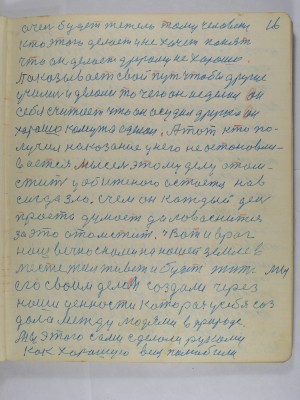 очен будет жетель тому человеку 16
кто этого делает и не хочет понят
что он делает другому не хорошо.
Показывает свой пут чтобы другие
учили и делали то чего он не делал он
себя считает что он осудил другого он
хорошо кому то сделал. А тот кто по-
лучил наказание у него не остановли-
вается мысел этому делу отом-
стит у обиженого остается на в
сигда зло. с чем он каждый ден
просто думает да ловаснится
за это отомстит. Вот и враг
наш вечно с нами на нашей земле в
месте жил живет и будит жить мы
его своим делом создали через
наши ценности которая у себя соз
дала между людями в природе
Мы этого сами сделали рукому
как хорошую вещ полюбили